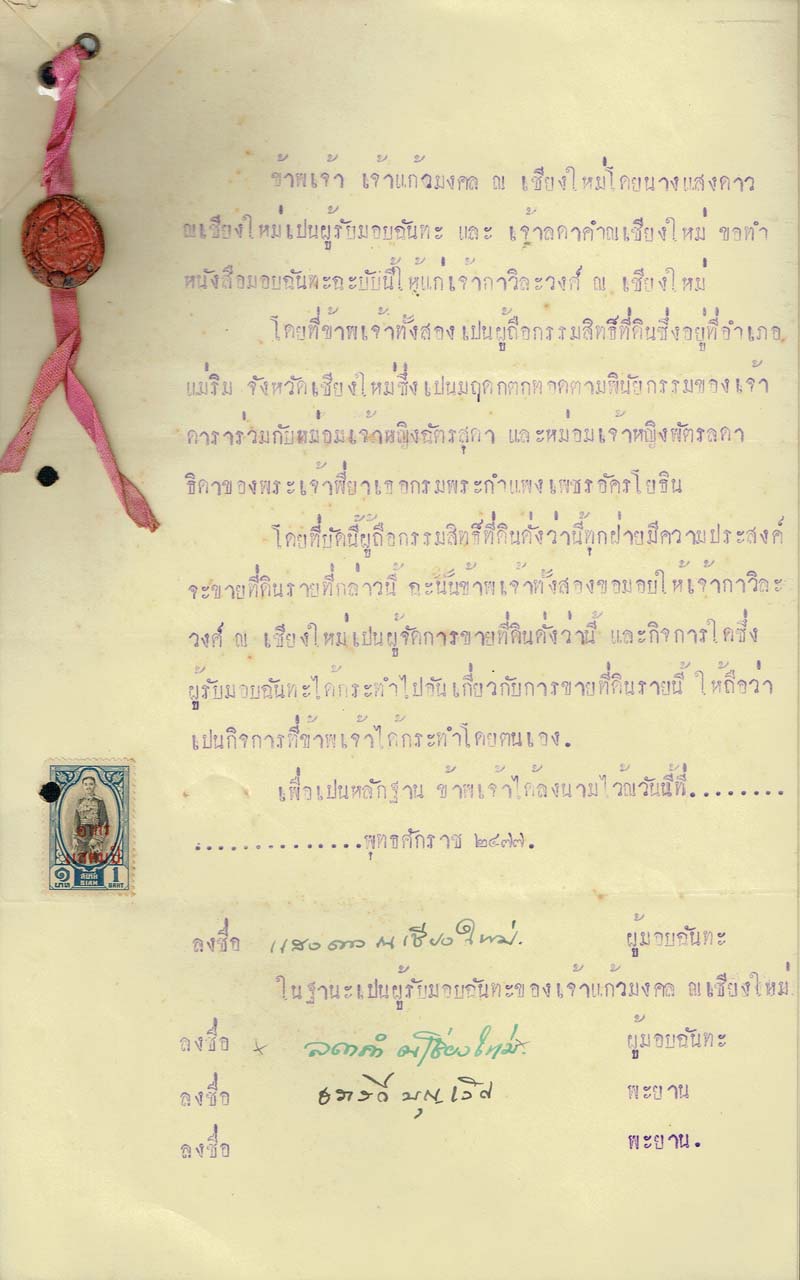 ข้าพเจ้า เจ้าแก้วมงคล ณ เชียงใหม่โดยนางแสงดาว
ณเชียงใหม่เปนผู้รับมอบฉันทะ และ เจ้าลดาคำณเชียงใหม่ ขอทำ
หนังสือมอบฉันทะฉะบับนี้ให้แก่เจ้ากาวิละวงศ์ ณ เชียงใหม่
โดยที่ข้าพเจ้าทั้งสองเปนผู้ถือกรรมสิทธิ์ที่ดินซึ่งอยู่ที่อำเภอ
แม่ริม จังหวัดเชียงใหม่ซึ่งเปนมฤดกตกทอดตามพินัยกรรมของเจ้า
ดารารวมกับหม่อมเจ้าหญิงฉัตรสุดา และหม่อมเจ้าหญิงพัตรลดา
ธิดาของพระเจ้าพี่ยาเธอกรมพระกำแพงเพชรอัครโยธิน
โดยที่บัดนี้ผู้ถือกรรมสิทธิ์ที่ดินดั่งว่านี้ทุกฝ่ายมีความประสงค์
จะขายที่ดินรายที่กล่าวนี้ ฉะนั้นข้าพเจ้าทั้งสองขอมอบให้เจ้ากาวิละ
วงศ์ ณ เชียงใหม่เปนผู้จัดการขายที่ดินดั่งว่านี้ และกิจการใดซึ่ง
ผู้รับมอบฉันทะได้กระทำไปอันเกี่ยวกับการขายที่ดินรายนี้ ให้ถือว่า
เปนกิจการที่ข้าพเจ้าได้กระทำโดยตนเอง.
เพื่อเปนหลักฐาน ข้าพเจ้าได้ลงนามไว้ณวันนี้ที่........
..............พุทธศักราช ๒๔๗๗.
อากร
แสตมป์
๑ สยาม 1
บาท SIAM BAHT
ลงชื่อ แสงดาว ณ เชียงใหม่. ผู้มอบฉันทะ
ในฐานะเปนผู้รับมอบฉันทะของเจ้าแก้วมงคล ณเชียงใหม่
ลงชื่อ x ลดาคำ ณเชียงใหม่ x ผู้มอบฉันทะ
ลงชื่อ พะยาน
ลงชื่อ พะยาน.